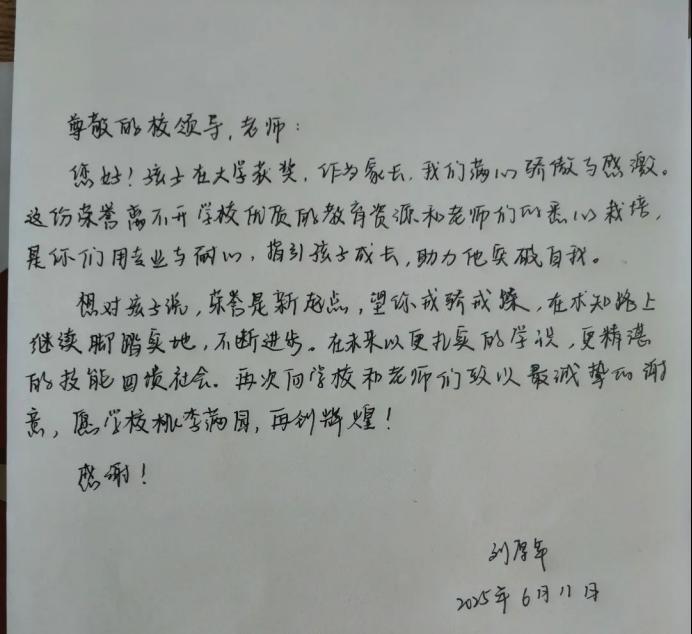 尊敬的校领导,老师:
您好!孩子在大学获奖,作为家长,我们满心骄傲与感激。
这份荣誉离不开学校优质的教育资源和老师们的悉心栽培,
是你们用专业与耐心,指引孩子成长,助力他突破自我。
想对孩子说,荣誉是新起点,望你戒骄戒躁,在求知路上
继续脚踏实地,不断进步。在未来以更扎实的学识,更精湛
的技能回馈社会。再次向学校和老师们致以最诚挚的谢
意,愿学校桃李满园,再创辉煌!
感谢!
刘厚年
2025年6月11日